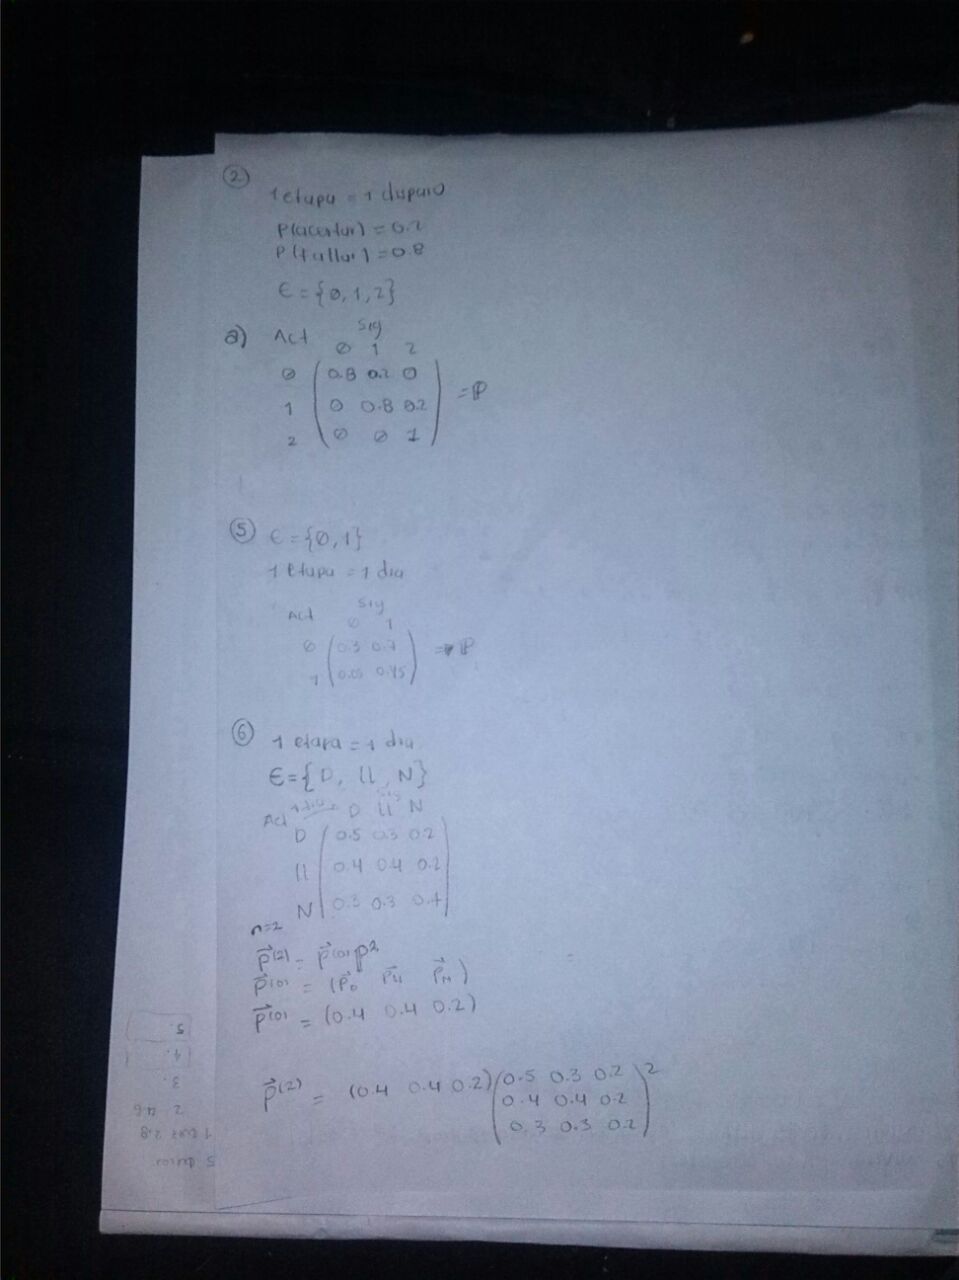 2
1 etapa = 1 disparo
P(acertar) = 0.2
P(fallar) = 0.8
E = {0, 1, 2}
a) Act Sig
0 1 2
0 0.8 0.2 0
1 0 0.8 0.2 = P
2 0 0 1
5 E = {0, 1}
1 etapa = 1 dia
Act Sig
0 1
0 0.3 0.7 = P
1 0.05
6 1 etapa = 1 dia
E = {D, ll, N}
Act Sig
D ll N
D 0.5 0.3 0.2
ll 0.4 0.4 0.2
N 0.3 0.3 0.4
n=2
p⃗(2) = p⃗(0) P²
p⃗(0) = (P⃗D P⃗ll P⃗N)
p⃗(0) = (0.4 0.4 0.2)
p⃗(2) = (0.4 0.4 0.2) (0.5 0.3 0.2)²
0.4 0.4 0.2
0.3 0.3 0.2
5.
4.
3.
2 4.6
1 2.8
5